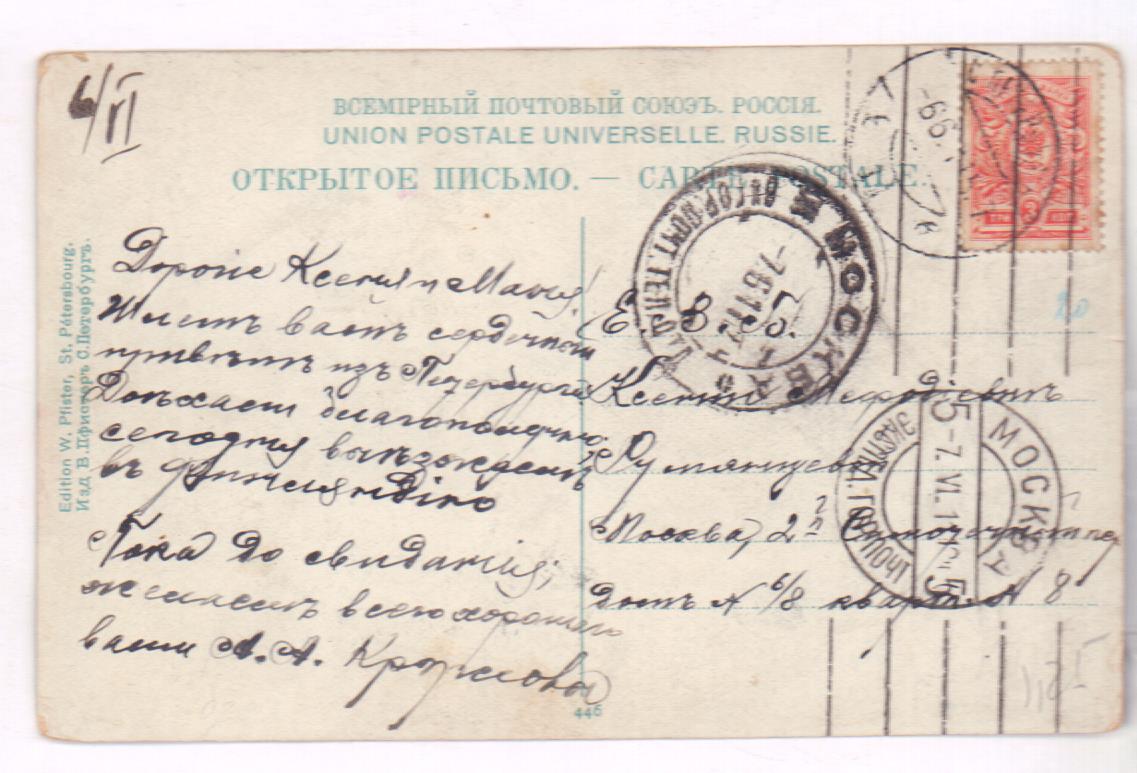 6/VI
ВСЕМІРНЫЙ ПОЧТОВЫЙ СОЮЗЪ. РОССІЯ.
UNION POSTALE UNIVERSELLE. RUSSIE.
ОТКРЫТОЕ ПИСЬМО. — CARTE POSTALE.
Edition W. Pfister, St. Pétersbourg.
Изд. В. Пфистеръ С.Петербургъ.
Дорогіе Ксенія и Манья!
Шлемъ вамъ сердечный
привѣтъ изъ Петербурга
Доѣхали благополучно,
сегодня выѣзжаемъ
въ Финляндію
Пока до свиданія;
желаемъ всего хорошаго
ваши А. А. Кругловы
Е. В. Б.
Ксеніи Мефодіевнѣ
Румянцевой
Москва, 2й
домъ № 6/8 кварт. № 8
МОСКВА
ГОР. ПОЧТ. ТЕЛ.
-7.6.11
МОСКВА
5-7.VI.11
ЭКСПЕД. ГОР. ПОЧТ
446
20